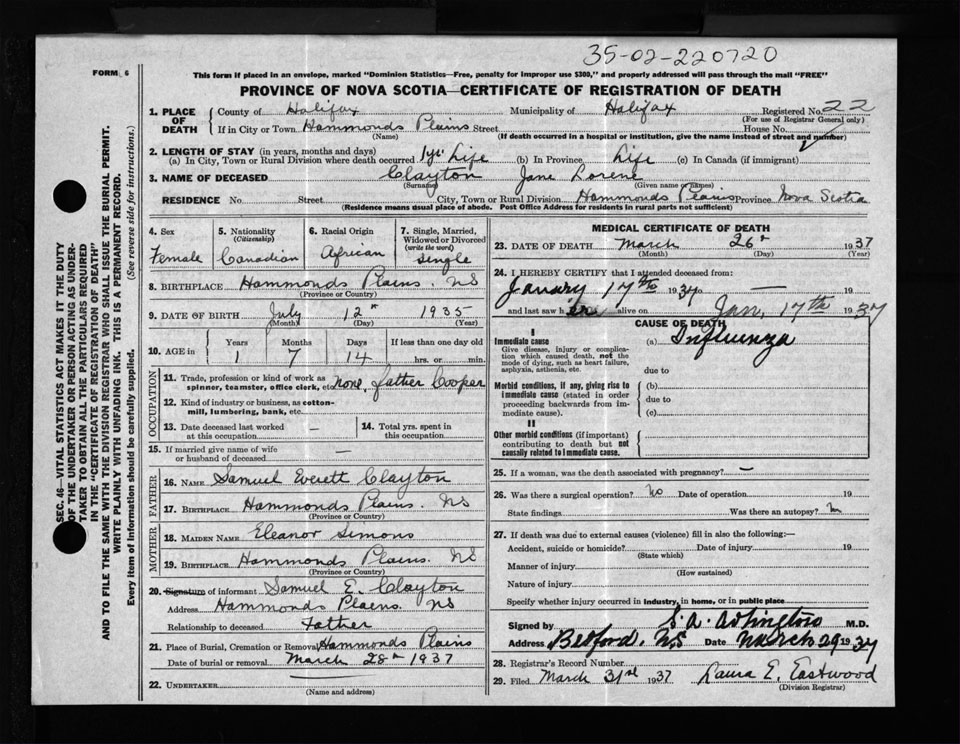 35-02-220720
FORM 6
This form if placed in an envelope, marked "Dominion Statistics—Free, penalty for improper use $300," and properly addressed will pass through the mail "FREE"
PROVINCE OF NOVA SCOTIA—CERTIFICATE OF REGISTRATION OF DEATH
1. PLACE OF DEATH
County of Halifax Municipality of Halifax Registered No. 22
(For use of Registrar General only)
If in City or Town Hammonds Plains Street House No.
(Name) (If death occurred in a hospital or institution, give the name instead of street and number)
2. LENGTH OF STAY (in years, months and days)
(a) In City, Town or Rural Division where death occurred 1 yr. Life (b) In Province Life (c) In Canada (if immigrant)
3. NAME OF DECEASED Clayton Jane Lorene
(Surname) (Given name or names)
RESIDENCE No. Street City, Town or Rural Division Hammonds Plains Province Nova Scotia
(Residence means usual place of abode. Post Office Address for residents in rural parts not sufficient)
4. Sex
Female
5. Nationality
(Citizenship)
Canadian
6. Racial Origin
African
7. Single, Married, Widowed or Divorced
(write the word)
Single
8. BIRTHPLACE Hammonds Plains. NS
(Province or Country)
9. DATE OF BIRTH July 12th 1935
(Month) (Day) (Year)
10. AGE in
Years Months Days If less than one day old
1 7 14 hrs. or min.
OCCUPATION
11. Trade, profession or kind of work as spinner, teamster, office clerk, etc. none. father Cooper
12. Kind of industry or business, as cotton-mill, lumbering, bank, etc.
13. Date deceased last worked at this occupation —
14. Total yrs. spent in this occupation
15. If married give name of wife or husband of deceased —
FATHER
16. NAME Samuel Everett Clayton
17. BIRTHPLACE Hammonds Plains. NS
(Province or Country)
MOTHER
18. MAIDEN NAME Eleanor Simons
19. BIRTHPLACE Hammonds Plains. NS
(Province or Country)
20. Signature of informant Samuel E. Clayton
Address Hammonds Plains. NS
Relationship to deceased Father
21. Place of Burial, Cremation or Removal Hammonds Plains
Date of burial or removal March 28th 1937
22. UNDERTAKER
(Name and address)
MEDICAL CERTIFICATE OF DEATH
23. DATE OF DEATH March 26th 1937
(Month) (Day) (Year)
24. I HEREBY CERTIFY that I attended deceased from:
January 17th 1937 — 19
and last saw her alive on Jan, 17th 1937
CAUSE OF DEATH
I
Immediate cause (a) Influenza
Give disease, injury or complication which caused death, not the mode of dying, such as heart failure, asphyxia, asthenia, etc.
due to
Morbid conditions, if any, giving rise to immediate cause (stated in order proceeding backwards from immediate cause).
(b)
due to
(c)
II
Other morbid conditions (if important) contributing to death but not causally related to immediate cause.
25. If a woman, was the death associated with pregnancy? —
26. Was there a surgical operation? No Date of operation 19
State findings Was there an autopsy? No
27. If death was due to external causes (violence) fill in also the following:—
Accident, suicide or homicide? Date of injury 19
(State which)
Manner of injury
(How sustained)
Nature of injury
Specify whether injury occurred in industry, in home, or in public place
Signed by S. A. M.D.
Address Bedford. N.S Date March 29 1937
28. Registrar's Record Number
29. Filed March 31st 1937 Laura E. Eastwood
(Division Registrar)
SEC. 46—VITAL STATISTICS ACT MAKES IT THE DUTY
OF THE UNDERTAKER OR PERSON ACTING AS UNDERTAKER TO OBTAIN ALL THE PARTICULARS REQUIRED
IN THE "CERTIFICATE OF REGISTRATION OF DEATH"
AND TO FILE THE SAME WITH THE DIVISION REGISTRAR WHO SHALL ISSUE THE BURIAL PERMIT.
WRITE PLAINLY WITH UNFADING INK. THIS IS A PERMANENT RECORD.
Every item of information should be carefully supplied. (See reverse side for instructions.)